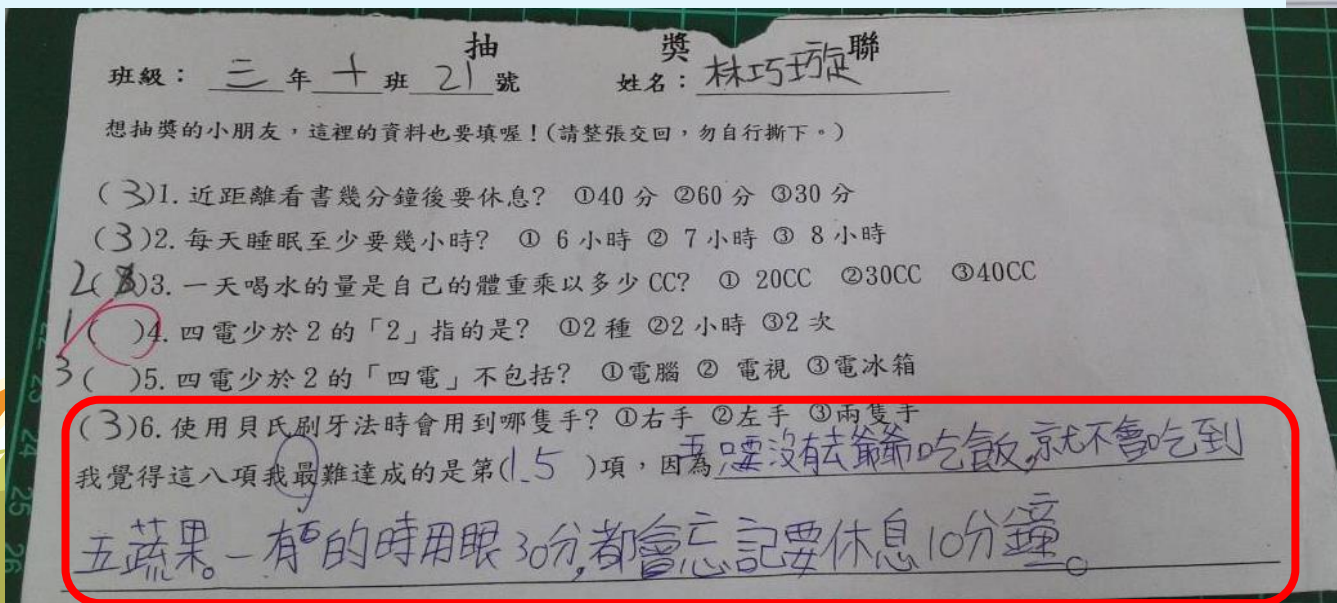 抽 獎 聯
班級：三年十班21號 姓名：林巧璇
想抽獎的小朋友，這裡的資料也要填喔！(請整張交回，勿自行撕下。)
(3)1. 近距離看書幾分鐘後要休息? ①40 分 ②60 分 ③30 分
(3)2. 每天睡眠至少要幾小時? ① 6 小時 ② 7 小時 ③ 8 小時
2( )3. 一天喝水的量是自己的體重乘以多少 CC? ① 20CC ②30CC ③40CC
1( )4. 四電少於 2 的「2」指的是? ①2 種 ②2 小時 ③2 次
3( )5. 四電少於 2 的「四電」不包括? ①電腦 ② 電視 ③電冰箱
(3)6. 使用貝氏刷牙法時會用到哪隻手? ①右手 ②左手 ③兩隻手
我覺得這八項我最難達成的是第(1.5 )項，因為五只要沒有去爺爺吃飯,就不會吃到
五蔬果。一有的時用眼30分,都會忘記要休息10分鐘。
22
23
24
25
26